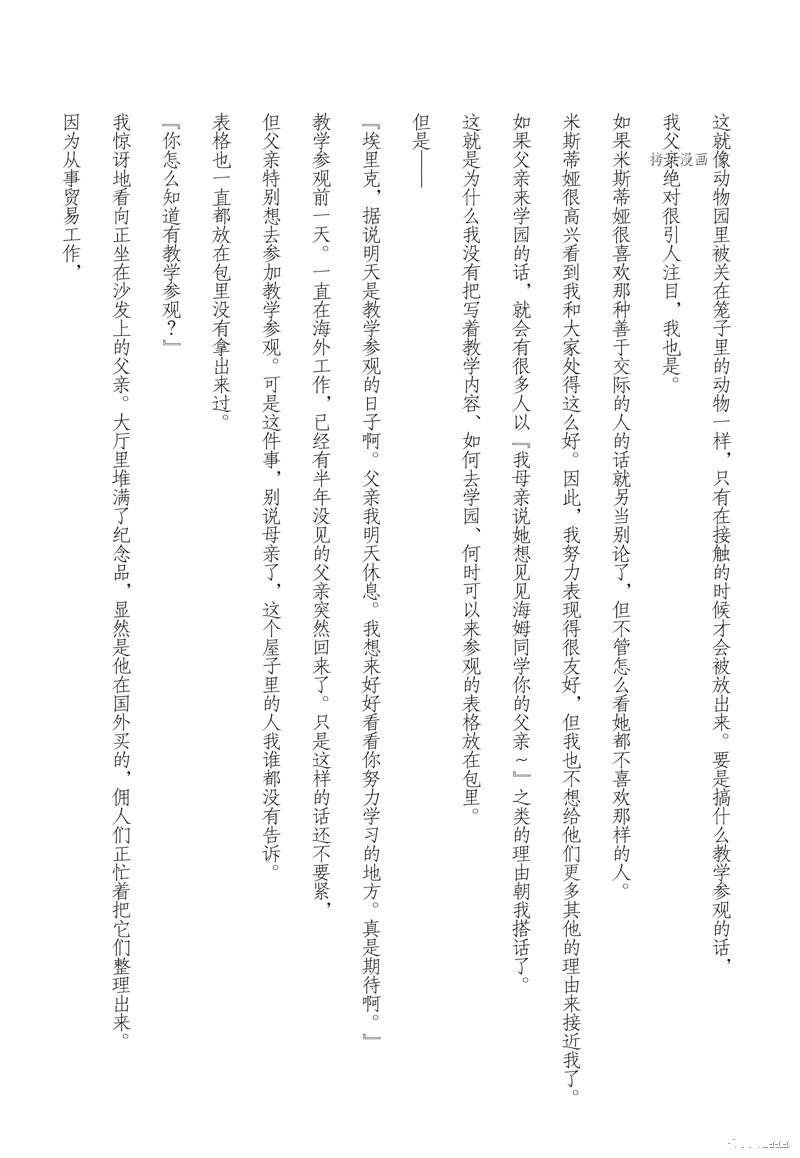 这就像动物园里被关在笼子里的动物一样，只有在接触的时候才会被放出来。要是搞什么教学参观的话，
我父亲绝对很引人注目，我也是。
如果米斯蒂娅很喜欢那种善于交际的人的话就另当别论了，但不管怎么看她都不喜欢那样的人。
米斯蒂娅很高兴看到我和大家处得这么好。因此，我努力表现得很友好，但我也不想给他们更多其他的理由来接近我了。
如果父亲来学园的话，就会有很多人以『我母亲说她想见见海姆同学你的父亲～』之类的理由朝我搭话了。
这就是为什么我没有把写着教学内容、如何去学园、何时可以来参观的表格放在包里。
但是——
『埃里克，据说明天是教学参观的日子啊。父亲我明天休息。我想来好好看看你努力学习的地方。真是期待啊。』
教学参观前一天。一直在海外工作，已经有半年没见的父亲突然回来了。只是这样的话还不要紧，
但父亲特别想去参加教学参观。可是这件事，别说母亲了，这个屋子里的人我谁都没有告诉。
表格也一直都放在包里没有拿出来过。
『你怎么知道有教学参观？』
我惊讶地看向正坐在沙发上的父亲。大厅里堆满了纪念品，显然是他在国外买的，佣人们正忙着把它们整理出来。
因为从事贸易工作，
拷贝漫画